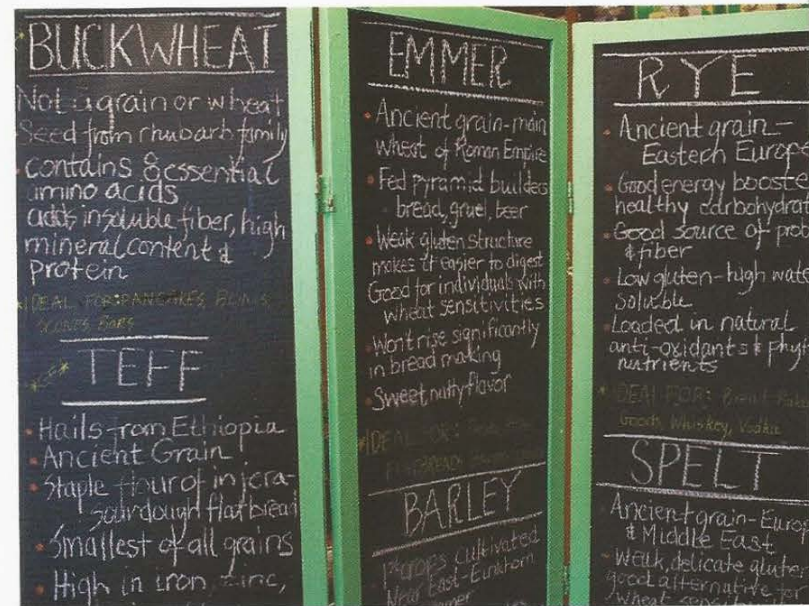 BUCKWHEAT
Not a grain or wheat
Seed from rhubarb family
contains 8 essential
amino acids
adds insoluble fiber, high
mineral content &
protein
IDEAL FOR: PANCAKES, BLINIS,
SCONES, BARS
TEFF
Hails from Ethiopia
Ancient Grain
Staple flour of injera-
sourdough flat bread
Smallest of all grains
High in iron, zinc,
EMMER
Ancient grain-main
wheat of Roman Empire
Fed pyramid builders
bread, gruel, beer
Weak gluten structure
makes it easier to digest
Good for individuals with
wheat sensitivities
Won't rise significantly
in bread making
Sweet nutty flavor
IDEAL FOR:
FLATBREAD
BARLEY
1st crops cultivated
Near East-Einkorn
RYE
Ancient grain-
Eastern Europe
Good energy booste
healthy carbohydrat
Good source of prot
& fiber
Low gluten-high wate
soluble
Loaded in natural
anti-oxidants & phyt
nutrients
IDEAL FOR: Bread, Baked
Goods, Whiskey, Vodka
SPELT
Ancient grain-Europ
& Middle East
Weak, delicate gluten
good alternative for
wheat